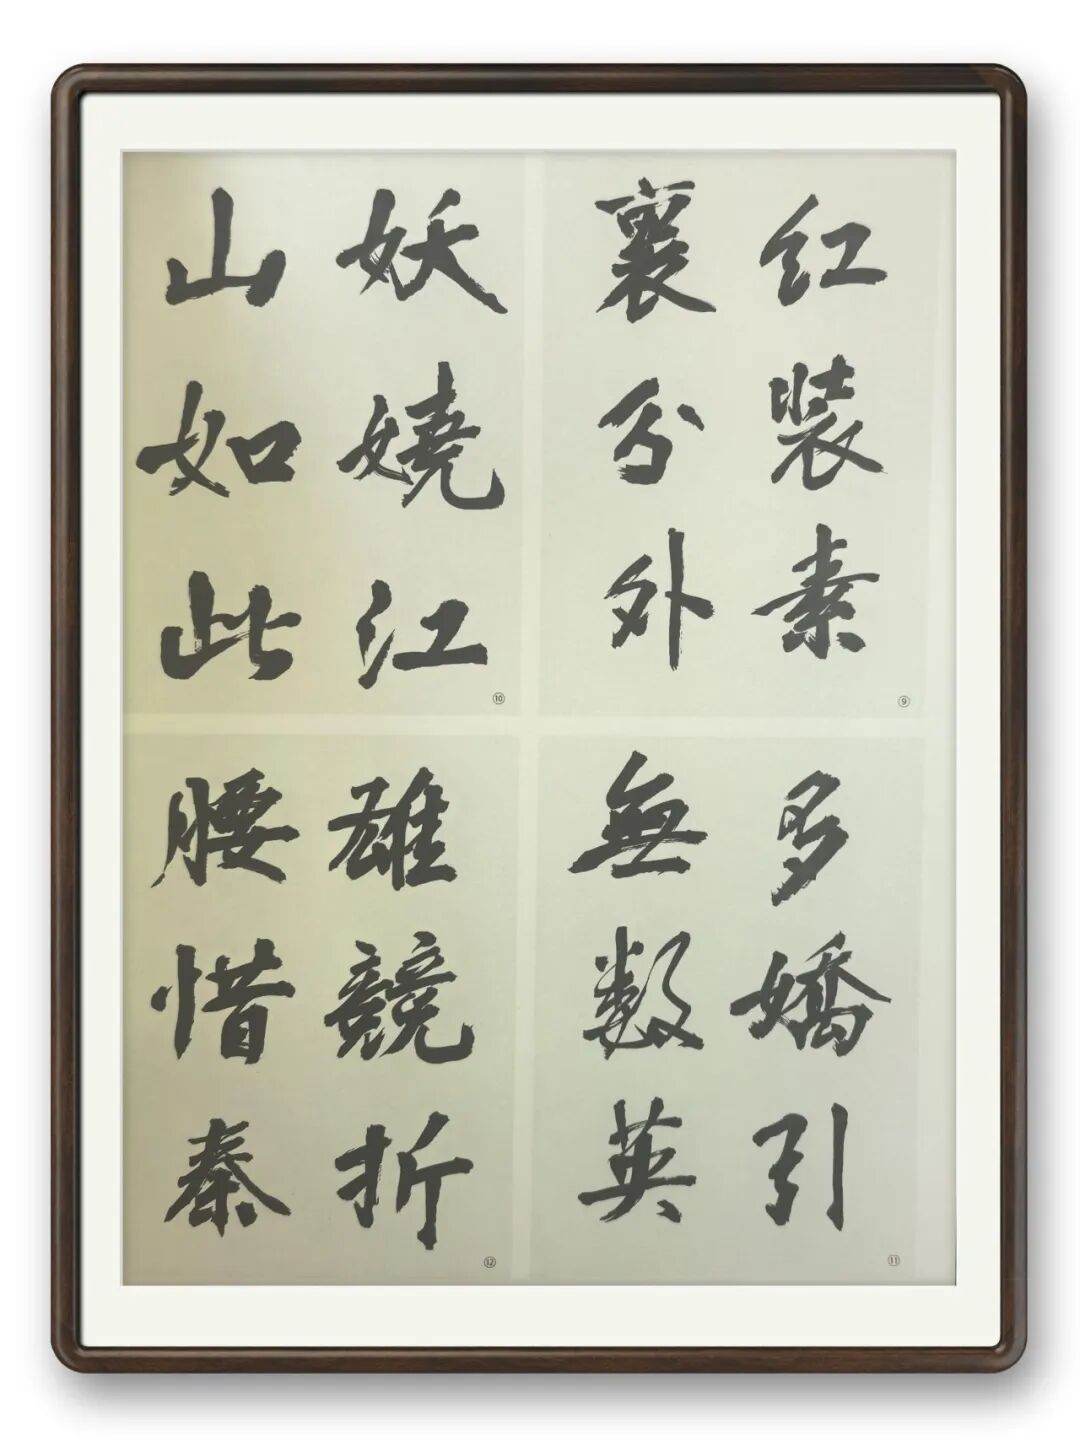 红装素
裹分外
⑨
妖嬈江
山如此
⑩
多嬌引
無数英
⑪
雄競折
腰惜秦
⑫